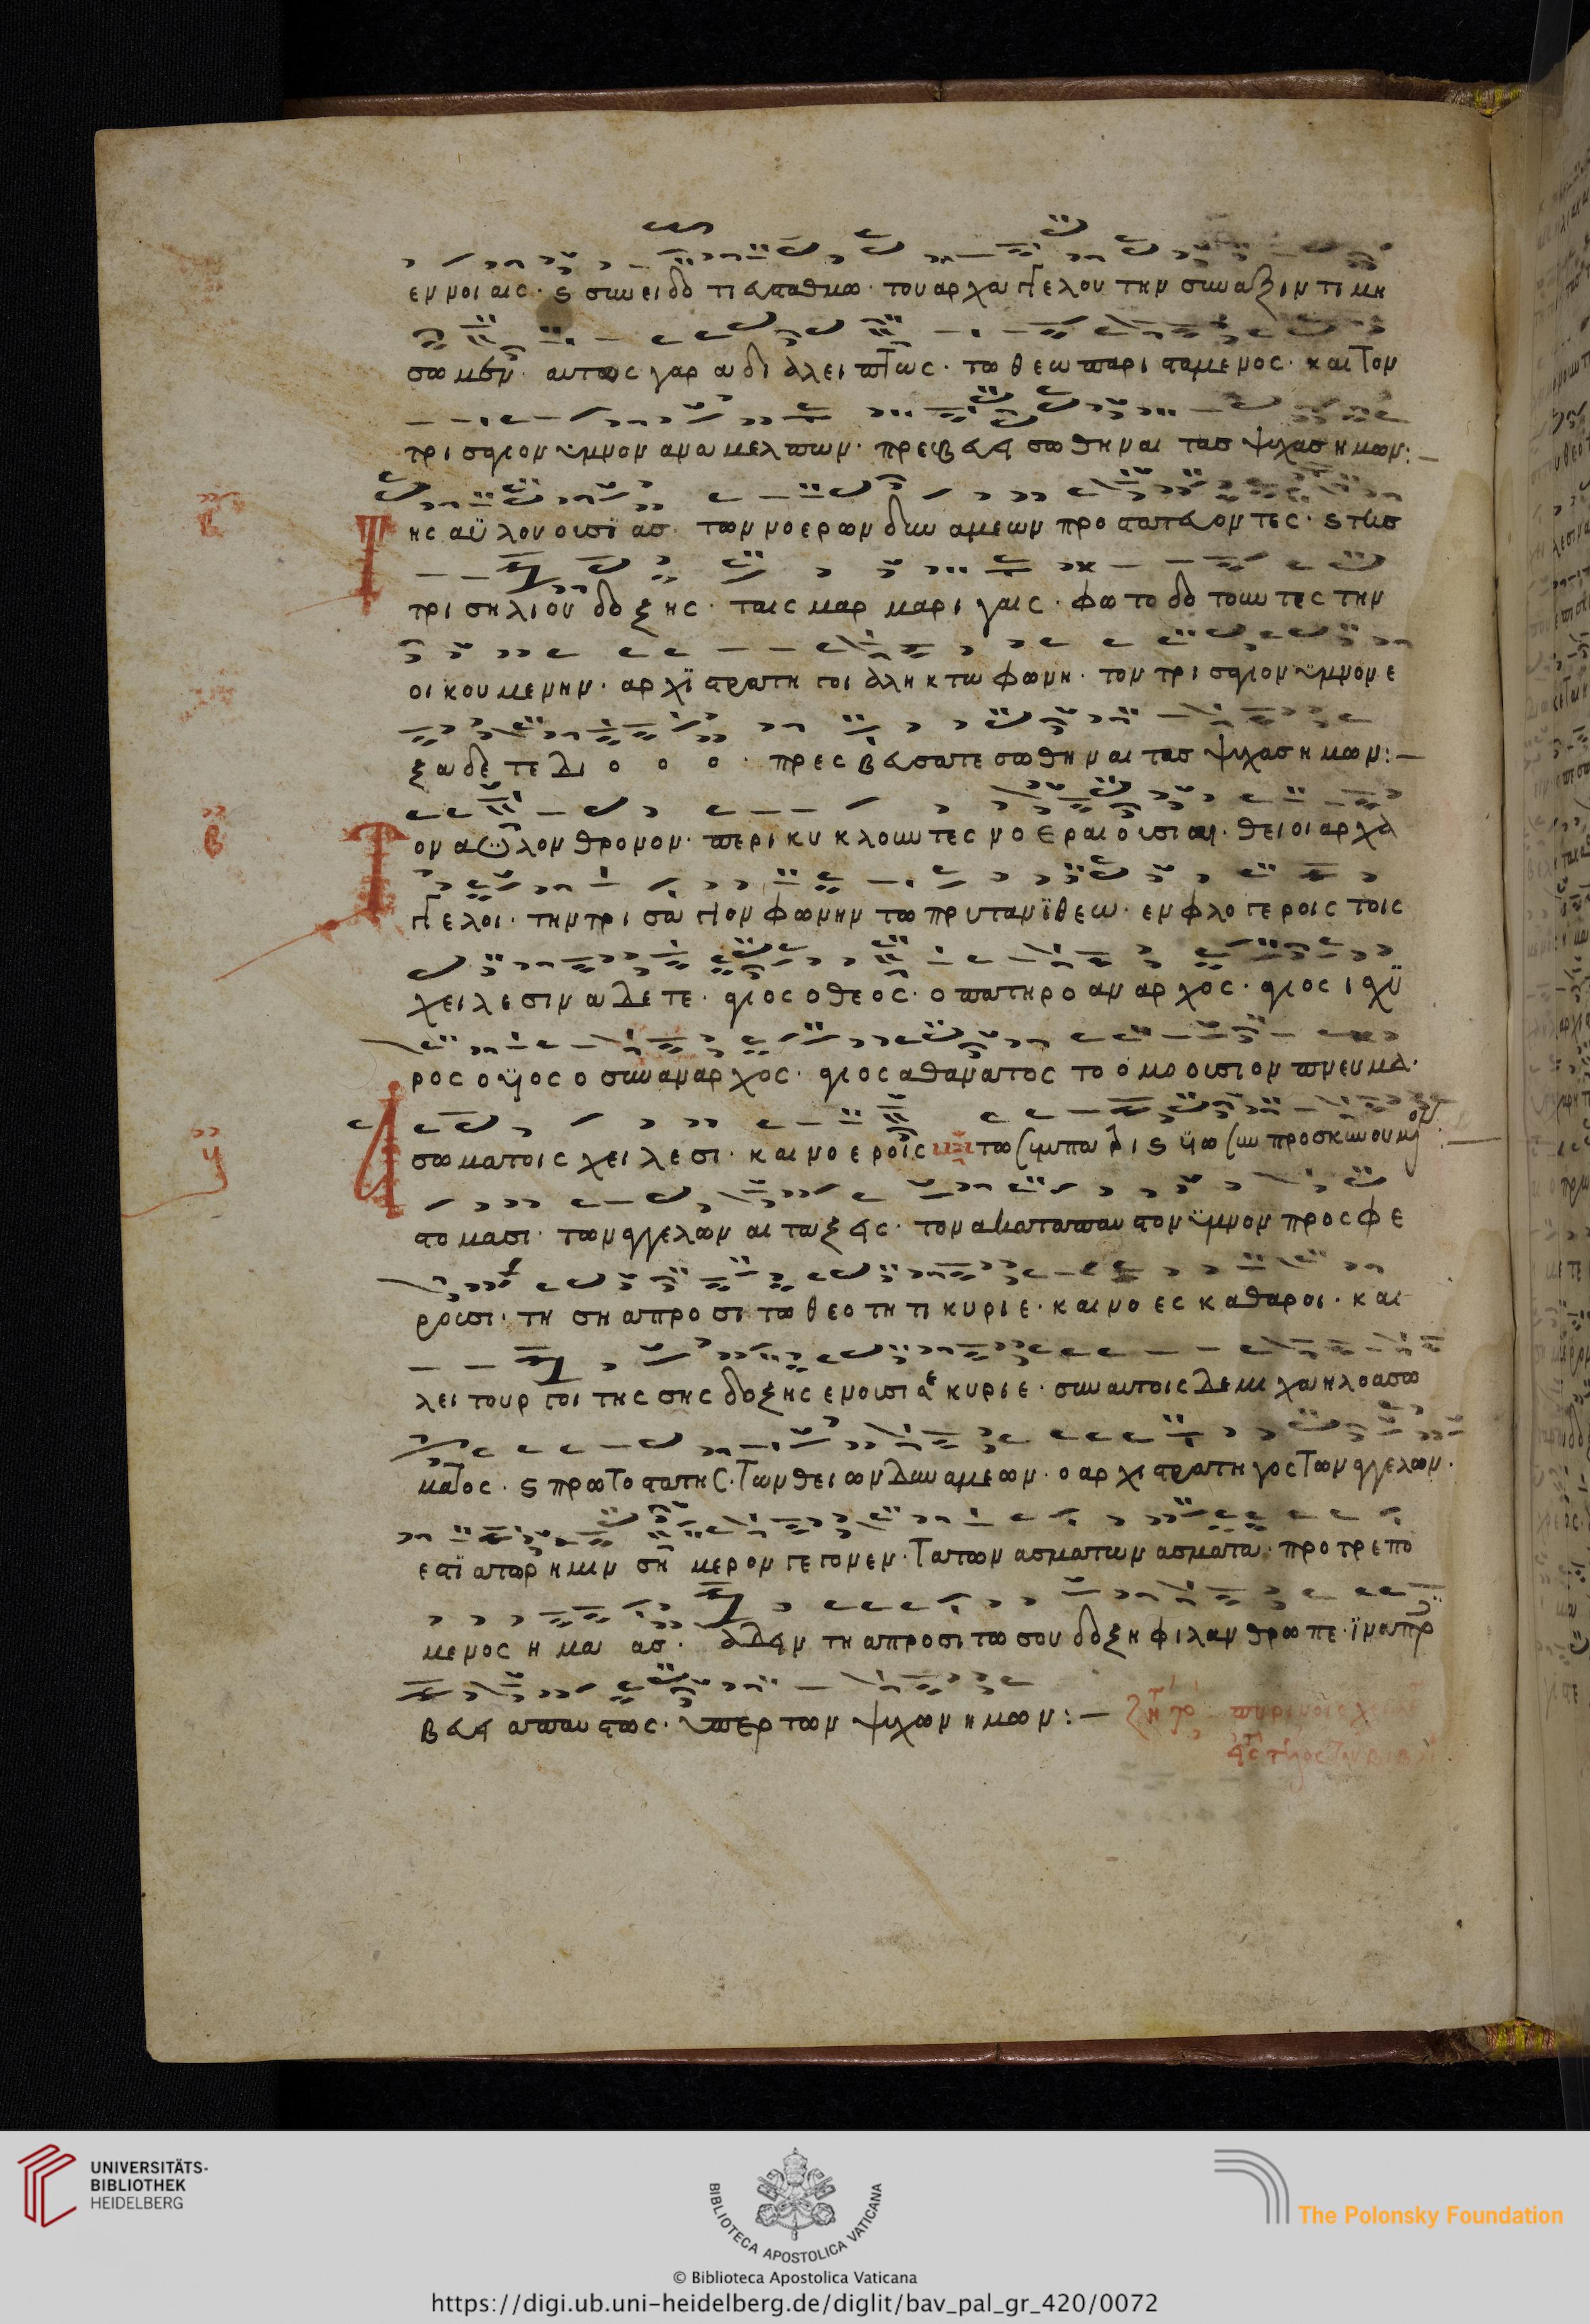 εννοιαις · ϗ συνειδο τι σταθμω · του αρχαγγελου την συναξιν τιμη
σωμεν · αυτος γαρ αδιαλειπτως · τω θεω παρισταμενος · και τον
τρισαγιον υμνον αναμελπων · πρεσβευει σωθηναι τας ψυχας ημων :—
Της αϋλου ουσϊας των νοερων δυναμεων προστατευοντες · ϗ της
τρισηλιου δοξης · ταις μαρμαρυγαις · φωτο τουντες την
οικουμενην · αρχϊστρατηγοι αληκτω φωνη · τον τρισαγιον ϋμνον ε
ξαδετε διο ο ο · πρεσβευσατε σωθηναι τας ψυχας ημων :—
β
Τον αϋλον θρονον · περικυκλουντες νοεραι ουσιαι · θειοι αρχα
γγελοι · την τρισαγιον φωνην τω πρυτανϊ θεω · εν φλογεροις τοις
χειλεσιν αδετε · αγιος ο θεος · ο πατηρ ο αναρχος · αγιος ισχϋ
ρος ο ϋιος ο συναναρχος · αγιος αθανατος το ομοουσιον πνευμα ·
Ασωματοις χειλεσι · και νοεροις τω συν πατρι ϗ ϋιω συν προσκυνουμενον
στομασι · των αγγελων αι ταξεις · τον ακαταπαυστον ϋμνον προσφε
ρουσι · τη ση απροσιτω θεοτητι κυριε · και νοες καθαροι · και
λειτουργοι της σης δοξης ενουσια κυριε · συν αυτοις δε μιχαηλ ο ασω
ματος · ϗ πρωτοστατης · των θειων δυναμεων · ο αρχιστρατηγος των αγγελων ·
εστϊατωρ ημιν σημερον γεγονεν · τα των ασματων ασματα · προτρεπο
μενος ημας · αδειν τη απροσιτω σου δοξη φιλανθρωπε · ϊνα πρ
βευει απαυστως · υπερ των ψυχων ημων :—
UNIVERSITÄTS-
BIBLIOTHEK
HEIDELBERG
BIBLIOTECA APOSTOLICA VATICANA
The Polonsky Foundation
© Biblioteca Apostolica Vaticana
https://digi.ub.uni-heidelberg.de/diglit/bav_pal_gr_420/0072